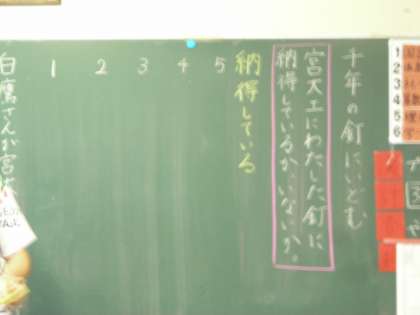 千年の釘にいどむ
宮大工にわたした釘に
納得しているか、いないか。
納得している
5
4
3
2
1
白鷹さんが宮
1
2
3
4
5
6